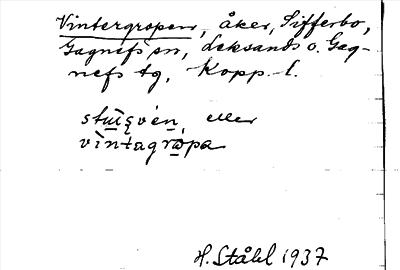 Vintergropen, åker, Sifferbo,
Gagnefs sn, Leksands o. Gag-
nefs tg, Kopp. l.
eller
vìntagrɷpa
H. Ståhl 1937